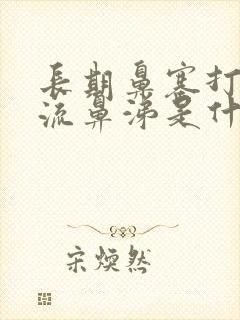 長期鼻塞打
流鼻涕是什
宋煥然